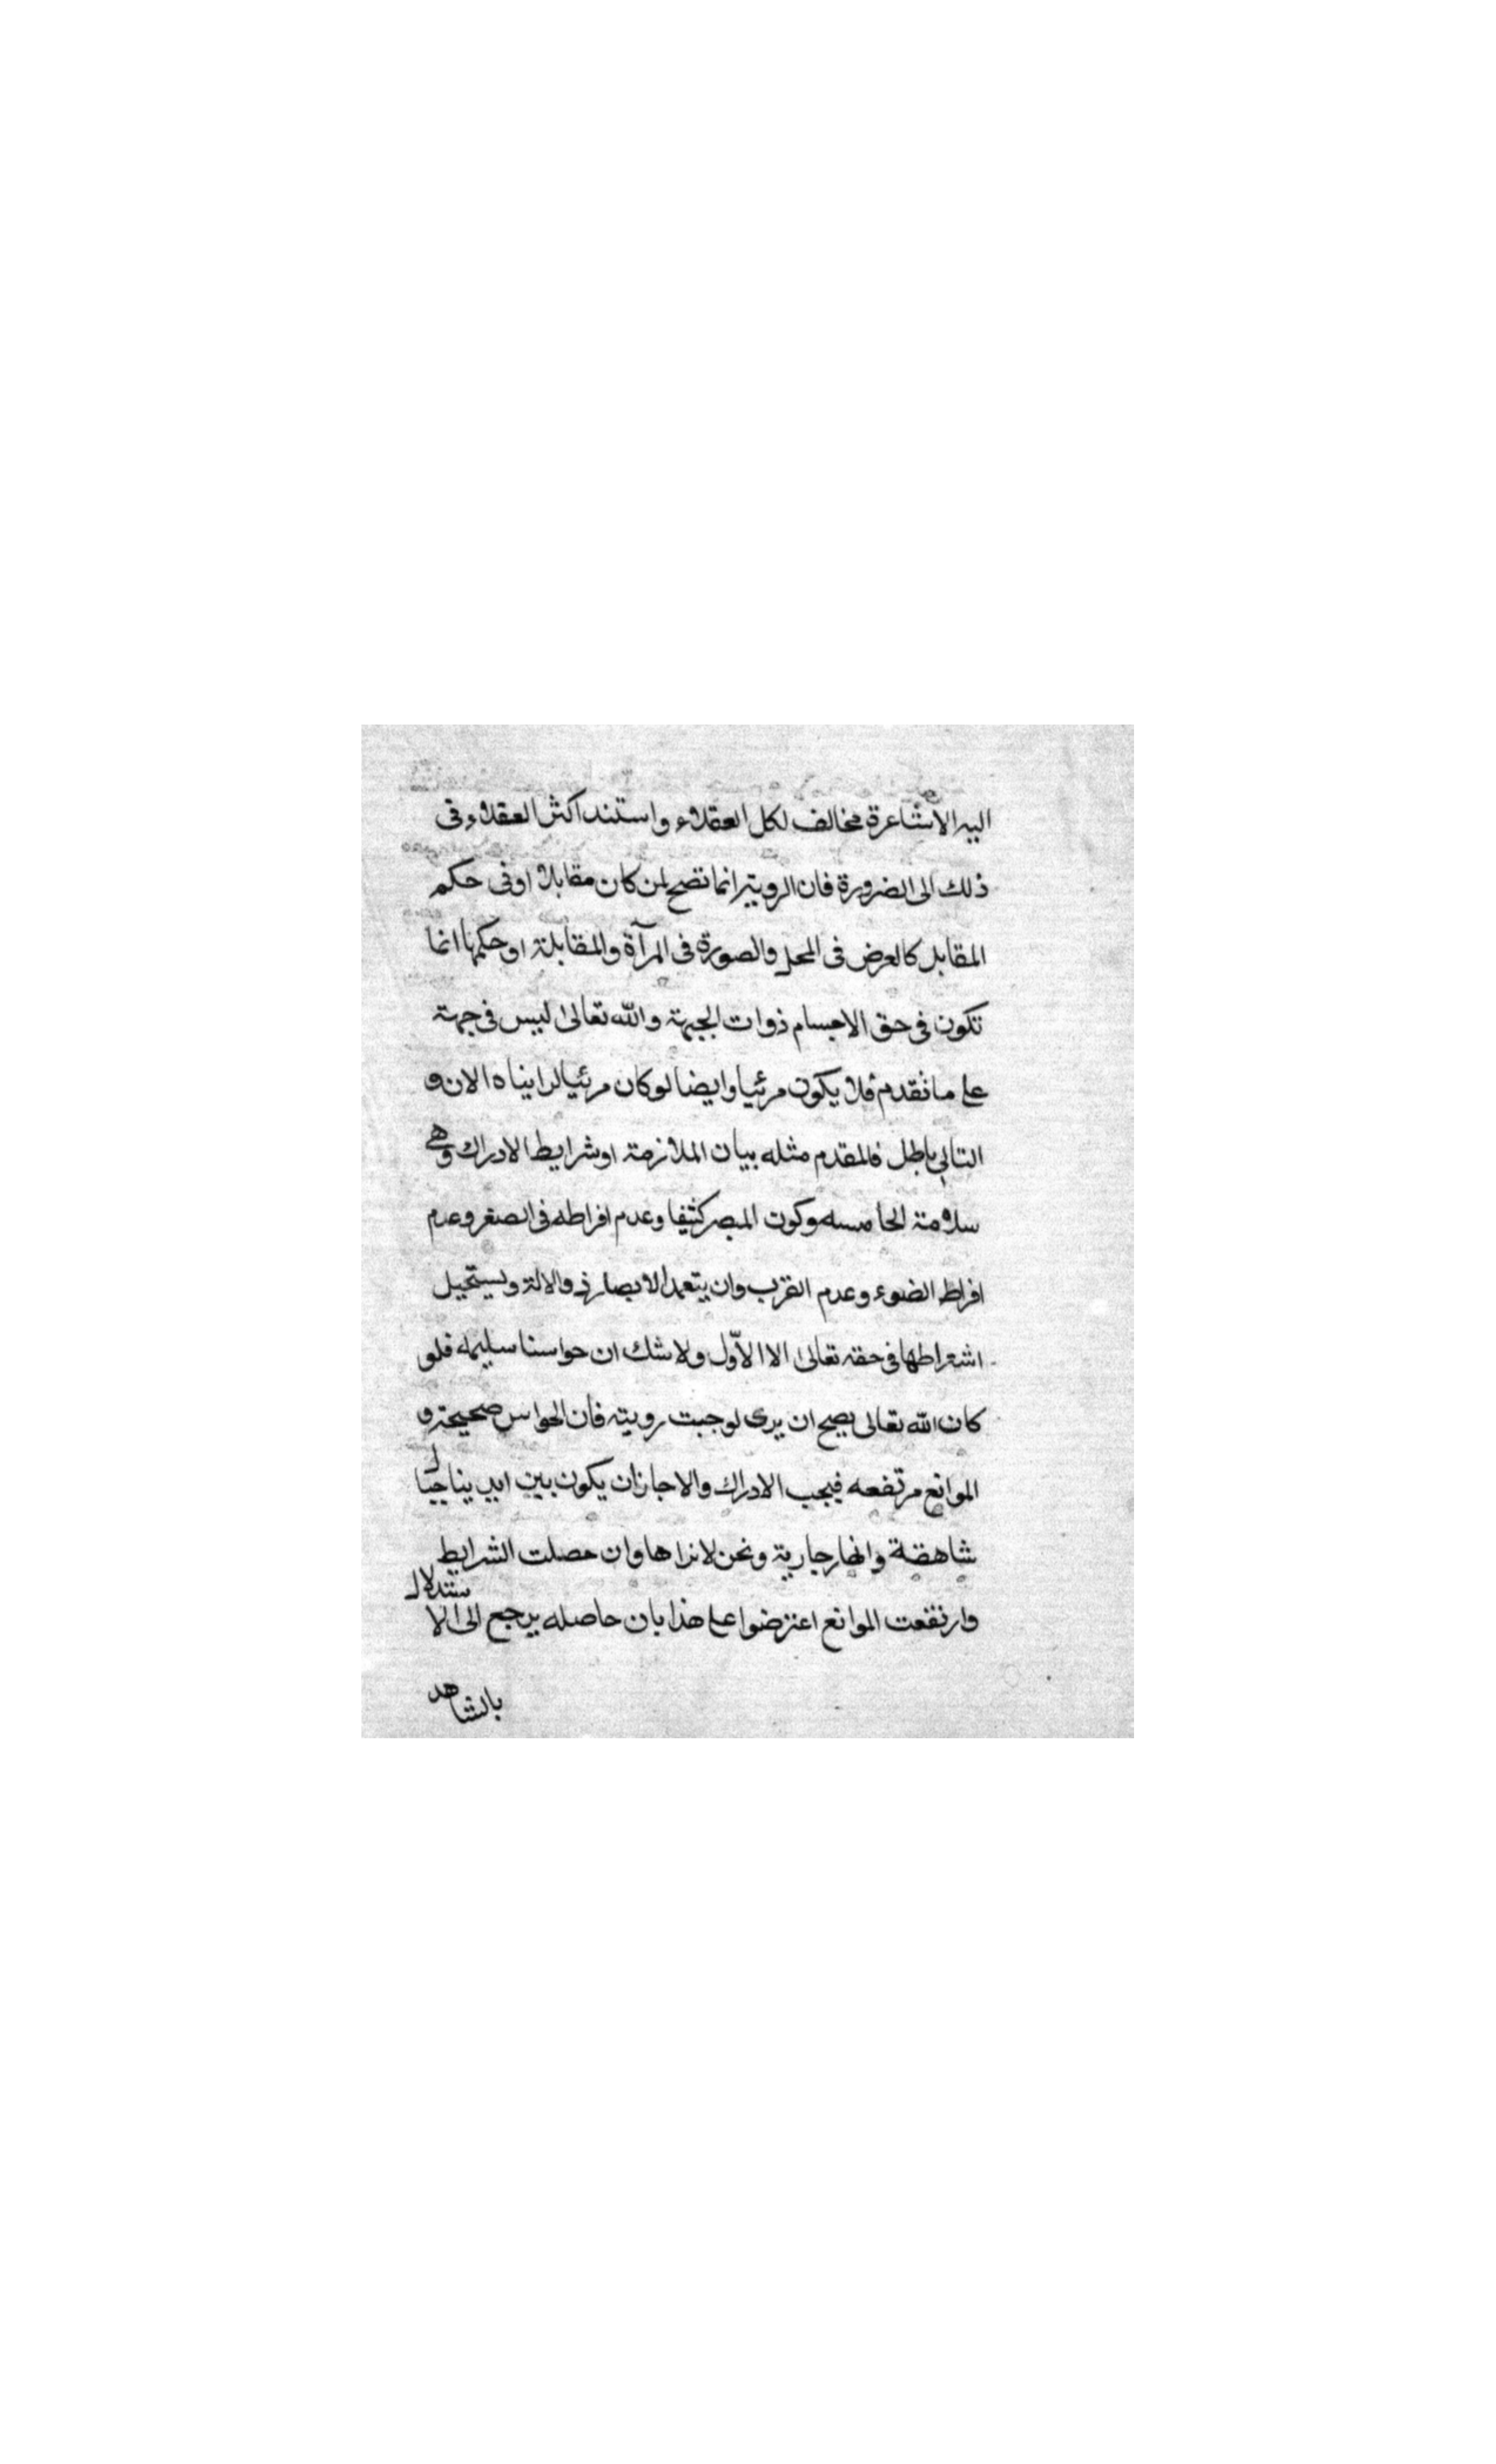 اليه الاشاعرة مخالف لكل العقلاء واستند اكثر العقلاء في
ذلك الى الضرورة فان الروية انما تصح لمن كان مقابلا او في حكم
المقابل كالعرض في المحل والصورة في المرآة والمقابلة او حكمها انما
تكون في حق الاجسام ذوات الجهة والله تعالى ليس في جهة
على ما تقدم فلا يكون مرئيا وايضا لو كان مرئيا لرايناه الان و
التالي باطل فالمقدم مثله بيان الملازمة او شرايط الادراك وهي
سلامة الحاسسه وكون المبصر كثيفا وعدم افراطه في الصغر وعدم
افراط الضوء وعدم القرب وان يتعمد الابصار ذو الالة ويستحيل
اشتراطها في حقه تعالى الا الاول ولا شك ان حواسنا سليمه فلو
كان الله تعالى يصح ان يرى لوجبت رويته فان الحواس صحيحة و
الموانع مرتفعه فيجب الادراك والا جاز ان يكون بين ايدينا جبال
شاهقة وانهار جارية ونحن لا نراها وان حصلت الشرايط
وارتفعت الموانع اعترضوا على هذا بان حاصله يرجع الى الاستدلال
بالشاهد